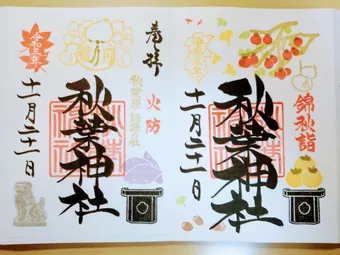 錦秋詣
秋葉神社
十一月二十一日
奉拝
火防
秋葉原
秋葉神社
令和三年
十一月二十一日